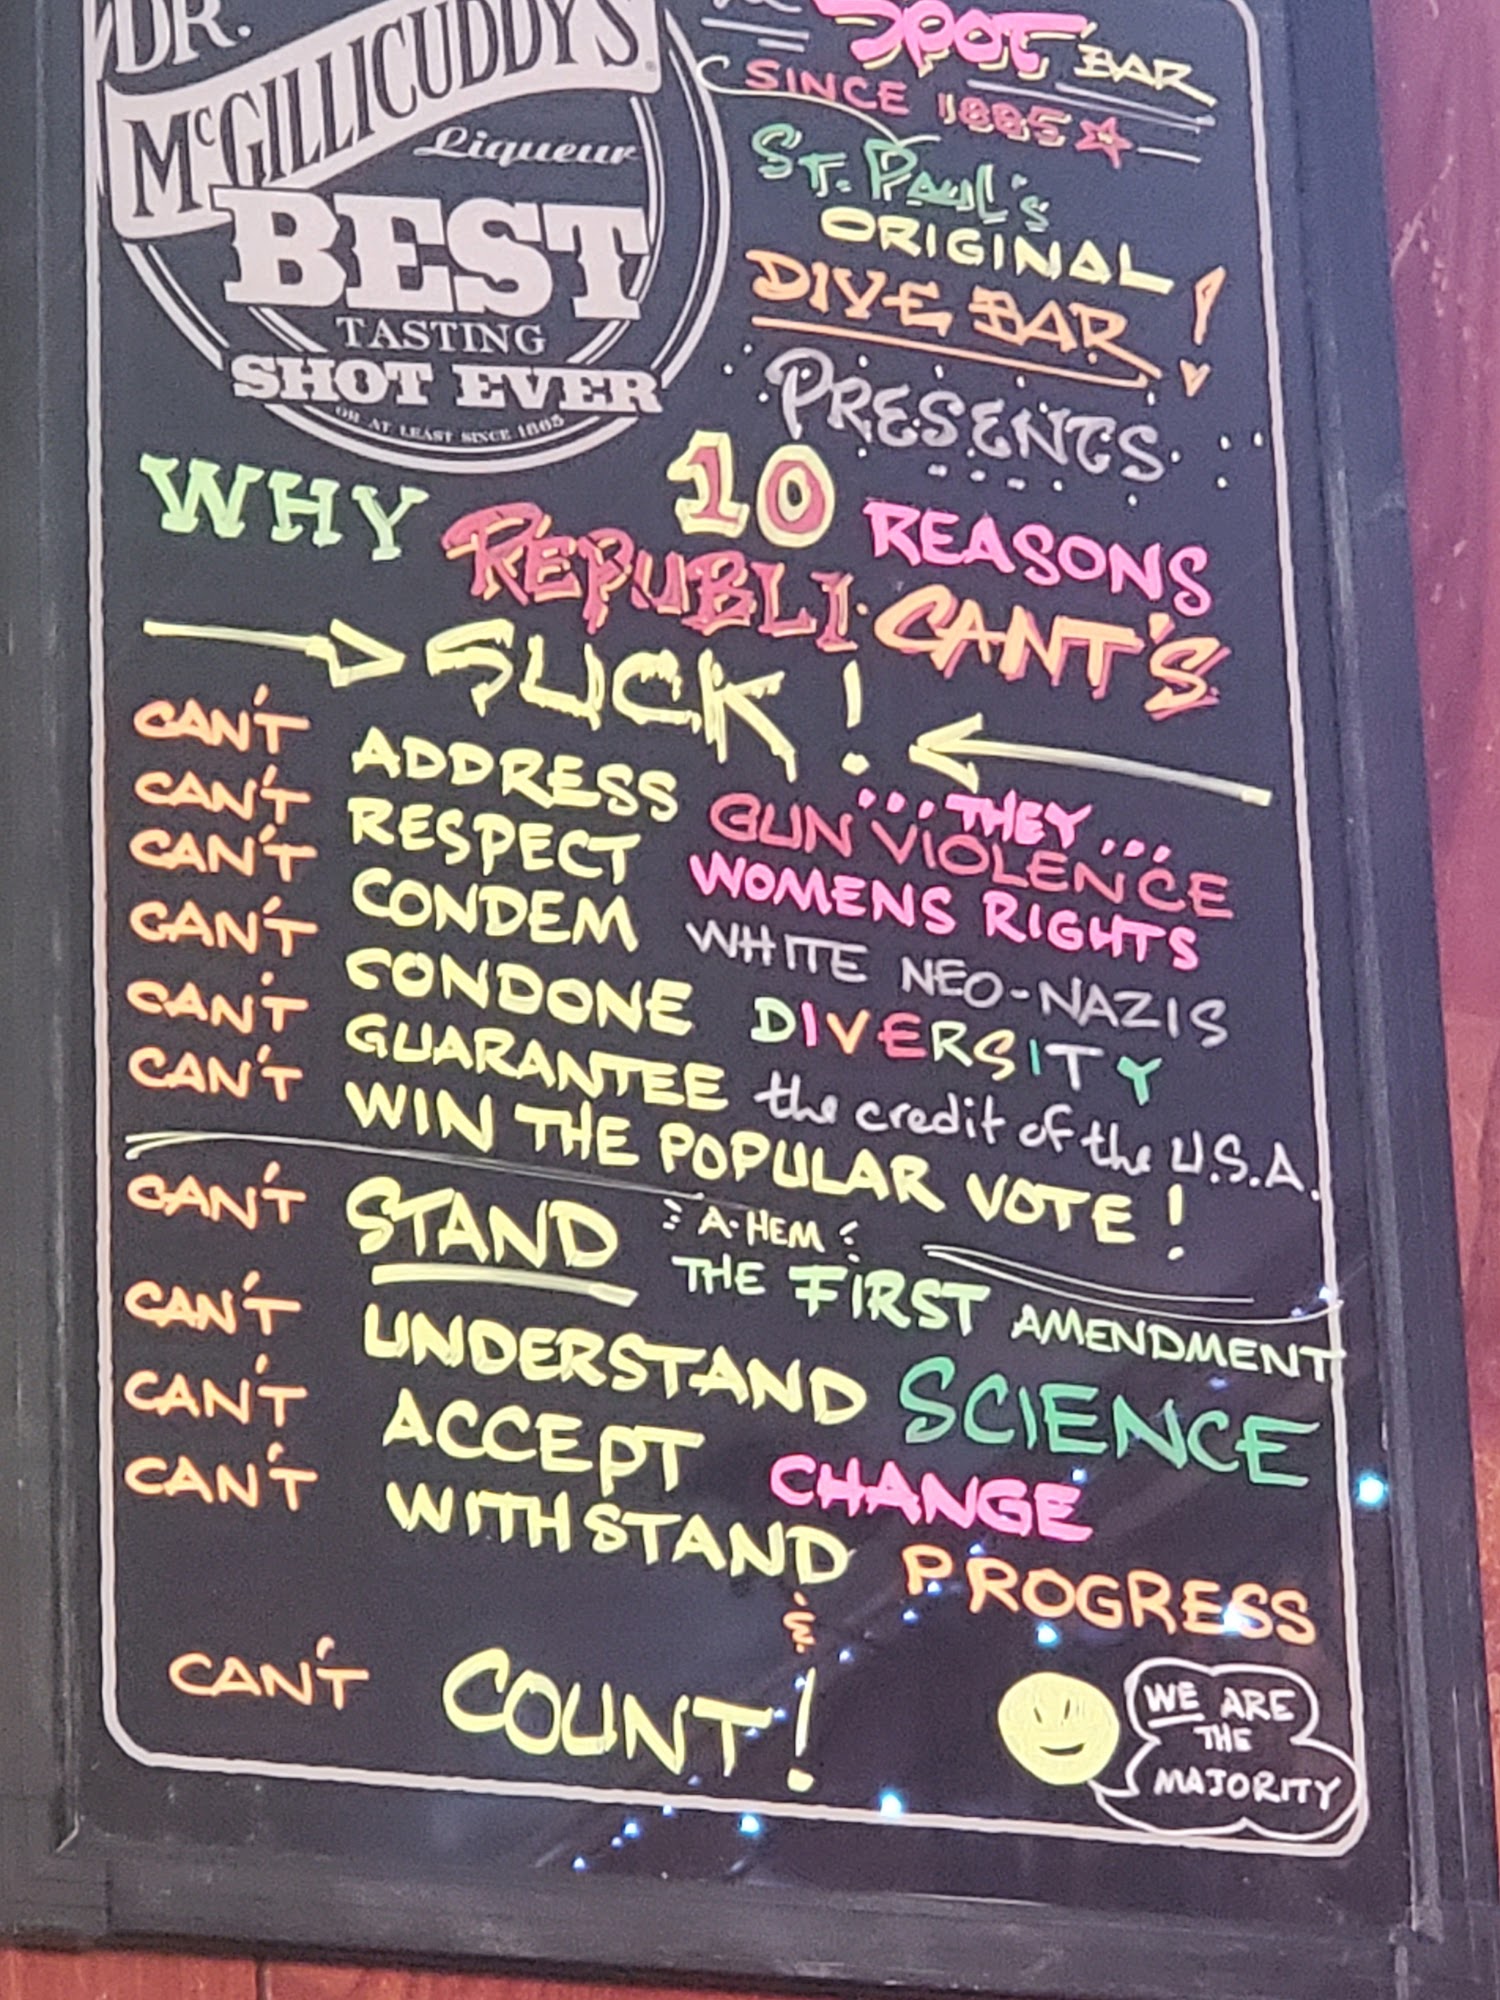 DR.
McGILLICUDDY'S
Liqueur
BEST
TASTING
SHOT EVER
OR AT LEAST SINCE 1865
SPOT BAR
SINCE 1885
ST. PAUL'S
ORIGINAL
DIVE BAR!
PRESENTS
10 REASONS
WHY REPUBLI·CANT'S
SUCK!
...THEY...
CAN'T ADDRESS GUN VIOLENCE
CAN'T RESPECT WOMENS RIGHTS
CAN'T CONDEM WHITE NEO-NAZIS
CAN'T CONDONE DIVERSITY
CAN'T GUARANTEE the credit of the U.S.A.
CAN'T WIN THE POPULAR VOTE!
A-HEM
CAN'T STAND THE FIRST AMENDMENT
CAN'T UNDERSTAND SCIENCE
CAN'T ACCEPT CHANGE
CAN'T WITHSTAND PROGRESS
&
CAN'T COUNT!
WE ARE
THE
MAJORITY